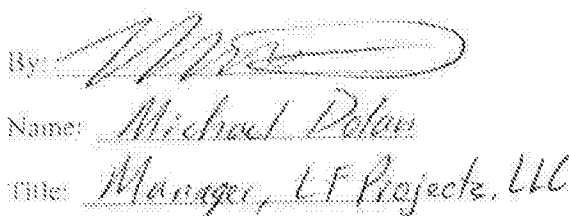 By:
Name: Michael Dolan
Title: Manager, LF Projects, LLC